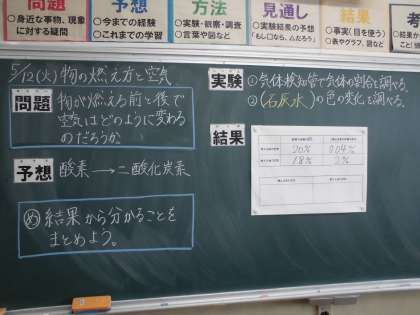 問題
○身近な事物、現象に対する疑問
予想
○今までの経験
○これまでの学習
方法
○実験・観察・調査
○言葉や図など
見通し
○実験結果の予想
「もし□なら、△だろう」
結果
○事実(目を使う)
○表やグラフ、図など
5/12(火) 物の燃え方と空気
問題
物が燃える前と後で
空気はどのように変わる
のだろうか。
予想 酸素→二酸化炭素
め 結果から分かることを
まとめよう。
実験 ①気体検知管で気体の割合を調べる。
②(石灰水)の色の変化を調べる。
結果
20% 0.04%
18% 2%